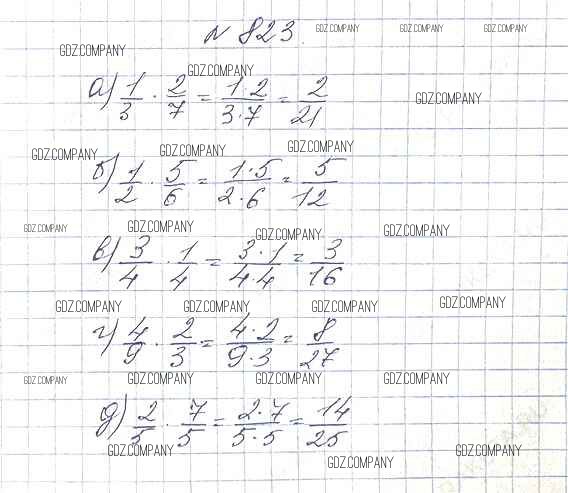 № 823.
GDZ.COMPANY GDZ.COMPANY GDZ.COMPANY
GDZ.COMPANY
GDZ.COMPANY
а) 1/3 · 2/7 = 1·2/3·7 = 2/21
GDZ.COMPANY
GDZ.COMPANY GDZ.COMPANY GDZ.COMPANY
б) 1/2 · 5/6 = 1·5/2·6 = 5/12
GDZ.COMPANY GDZ.COMPANY GDZ.COMPANY GDZ.COMPANY
в) 3/4 · 1/4 = 3·1/4·4 = 3/16
GDZ.COMPANY GDZ.COMPANY GDZ.COMPANY GDZ.COMPANY
г) 4/9 · 2/3 = 4·2/9·3 = 8/27
GDZ.COMPANY GDZ.COMPANY GDZ.COMPANY GDZ.COMPANY
д) 2/5 · 7/5 = 2·7/5·5 = 14/25
GDZ.COMPANY GDZ.COMPANY GDZ.COMPANY